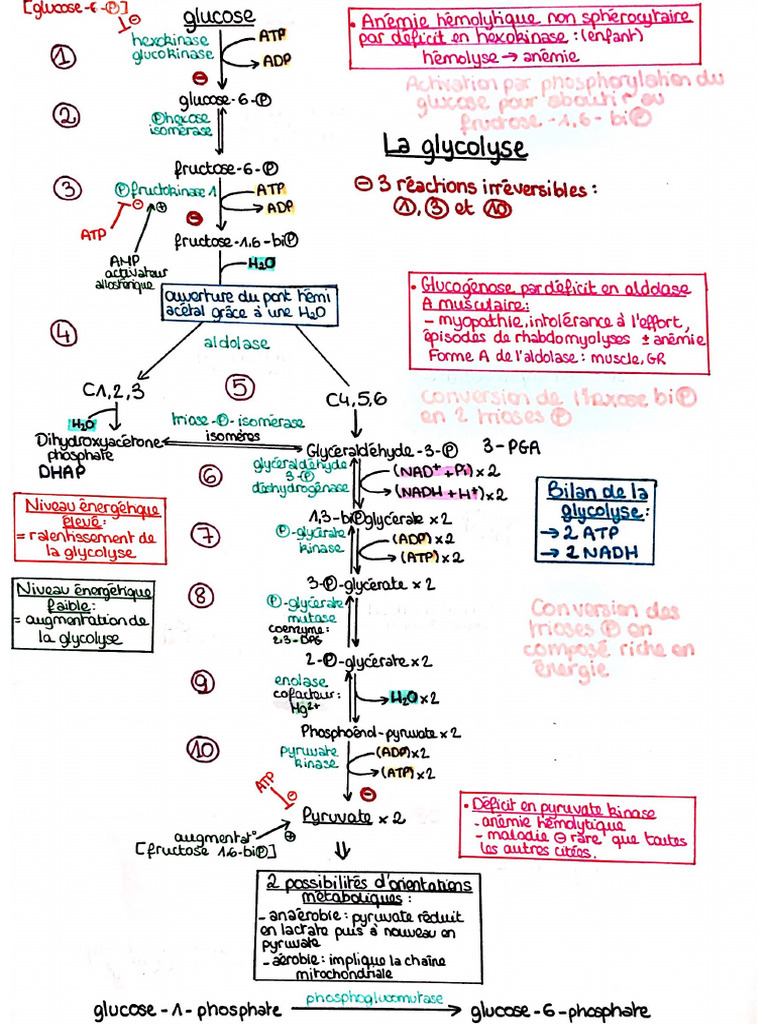 [glucose-6-Ⓟ]
glucose
⊖
① hexokinase
glucokinase
ATP
ADP
⊖
glucose-6-Ⓟ
② Ⓟhexose
isomérase
fructose-6-Ⓟ
③ Ⓟfructokinase 1
ATP
ADP
⊖ ⊕
ATP
⊖
AMP
activateur
allostérique
fructose-1,6-biⓅ
H₂O
ouverture du pont hémi
acétal grâce à une H₂O
④ aldolase
• Anémie hémolytique non sphérocytaire
par déficit en hexokinase : (enfant)
hémolyse → anémie
Activation par phosphorylation du
glucose pour aboutir au
fructose-1,6-biⓅ
La glycolyse
⊖ 3 réactions irréversibles :
①, ③ et ⑩
• Glucogénose par déficit en aldolase
A musculaire :
- myopathie, intolérance à l'effort,
épisodes de rhabdomyolyses ± anémie
Forme A de l'aldolase : muscle, GR
conversion de l'hexose biⓅ
en 2 trioses Ⓟ
C1,2,3
⑤
C4,5,6
H₂O
triose-Ⓟ-isomérase
isomères
Dihydroxyacétone
phosphate
DHAP
Glycéraldéhyde-3-Ⓟ 3-PGA
⑥ glycéraldéhyde
3-Ⓟ
déshydrogénase
(NAD⁺ + Pi) x2
(NADH + H⁺) x2
1,3-biⓅglycérate x2
⑦ Ⓟ-glycérate
kinase
(ADP) x2
(ATP) x2
3-Ⓟ-glycérate x2
⑧ Ⓟ-glycérate
mutase
coenzyme :
2,3-DPG
2-Ⓟ-glycérate x2
⑨ enolase
cofacteur :
Mg²⁺
H₂O x2
Phosphoénol-pyruvate x2
⑩ pyruvate
kinase
(ADP) x2
(ATP) x2
⊖
ATP
⊖
Pyruvate x2
augmentat°
[fructose 1,6-biⓅ]
⊕
Niveau énergétique
élevé :
= ralentissement de
la glycolyse
Niveau énergétique
faible :
= augmentation de
la glycolyse
Bilan de la
glycolyse :
→ 2 ATP
→ 2 NADH
Conversion des
trioses Ⓟ en
composé riche en
énergie
• Déficit en pyruvate kinase
- anémie hémolytique
- maladie ⊖ rare que toutes
les autres citées.
2 possibilités d'orientations
métaboliques :
- anaérobie : pyruvate réduit
en lactate puis à nouveau en
pyruvate
- aérobie : implique la chaîne
mitochondriale
glucose-1-phosphate
phosphoglucomutase
glucose-6-phosphate